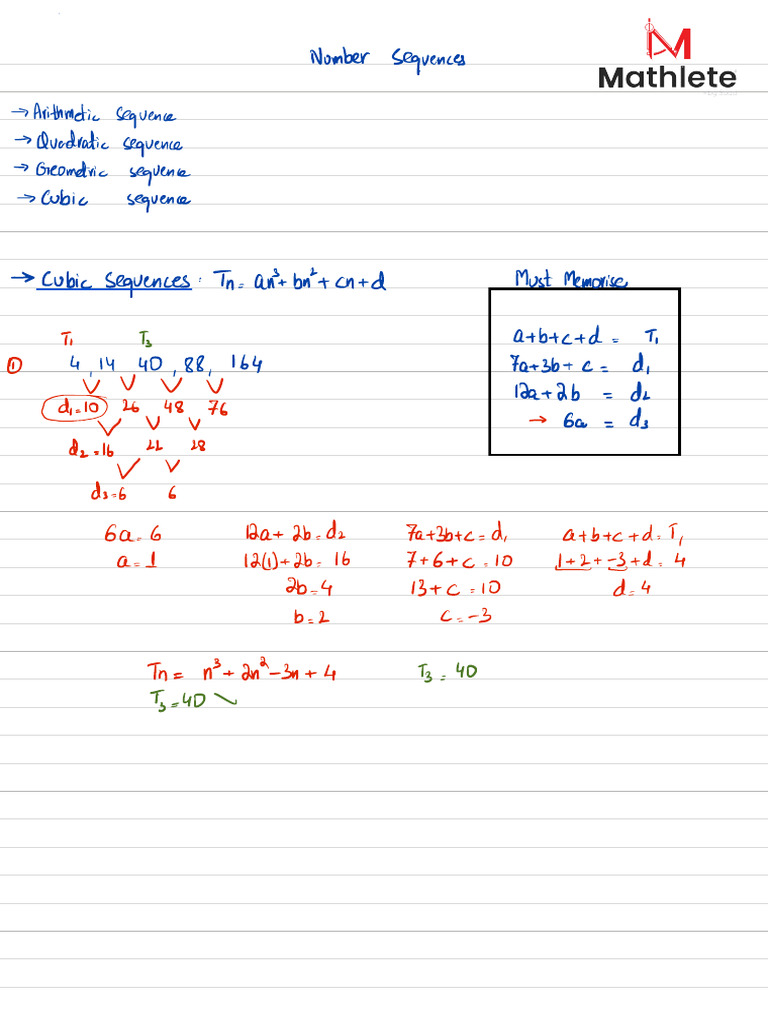 Number Sequences
Mathlete
→ Arithmetic sequence
→ Quadratic sequence
→ Geometric sequence
→ Cubic sequence
→ Cubic Sequences : Tn = an³ + bn² + cn + d
Must Memorise
a+b+c+d = T₁
7a+3b+c = d₁
12a+2b = d₂
→ 6a = d₃
T₁ T₃
① 4, 14 40, 88, 164
d₁=10 26 48 76
d₂=16 22 28
d₃=6 6
6a=6 12a+2b=d₂ 7a+3b+c=d₁ a+b+c+d=T₁
a=1 12(1)+2b=16 7+6+c=10 1+2+-3+d=4
2b=4 13+c=10 d=4
b=2 c=-3
Tn = n³+2n²-3n+4 T₃=40
T₃=40